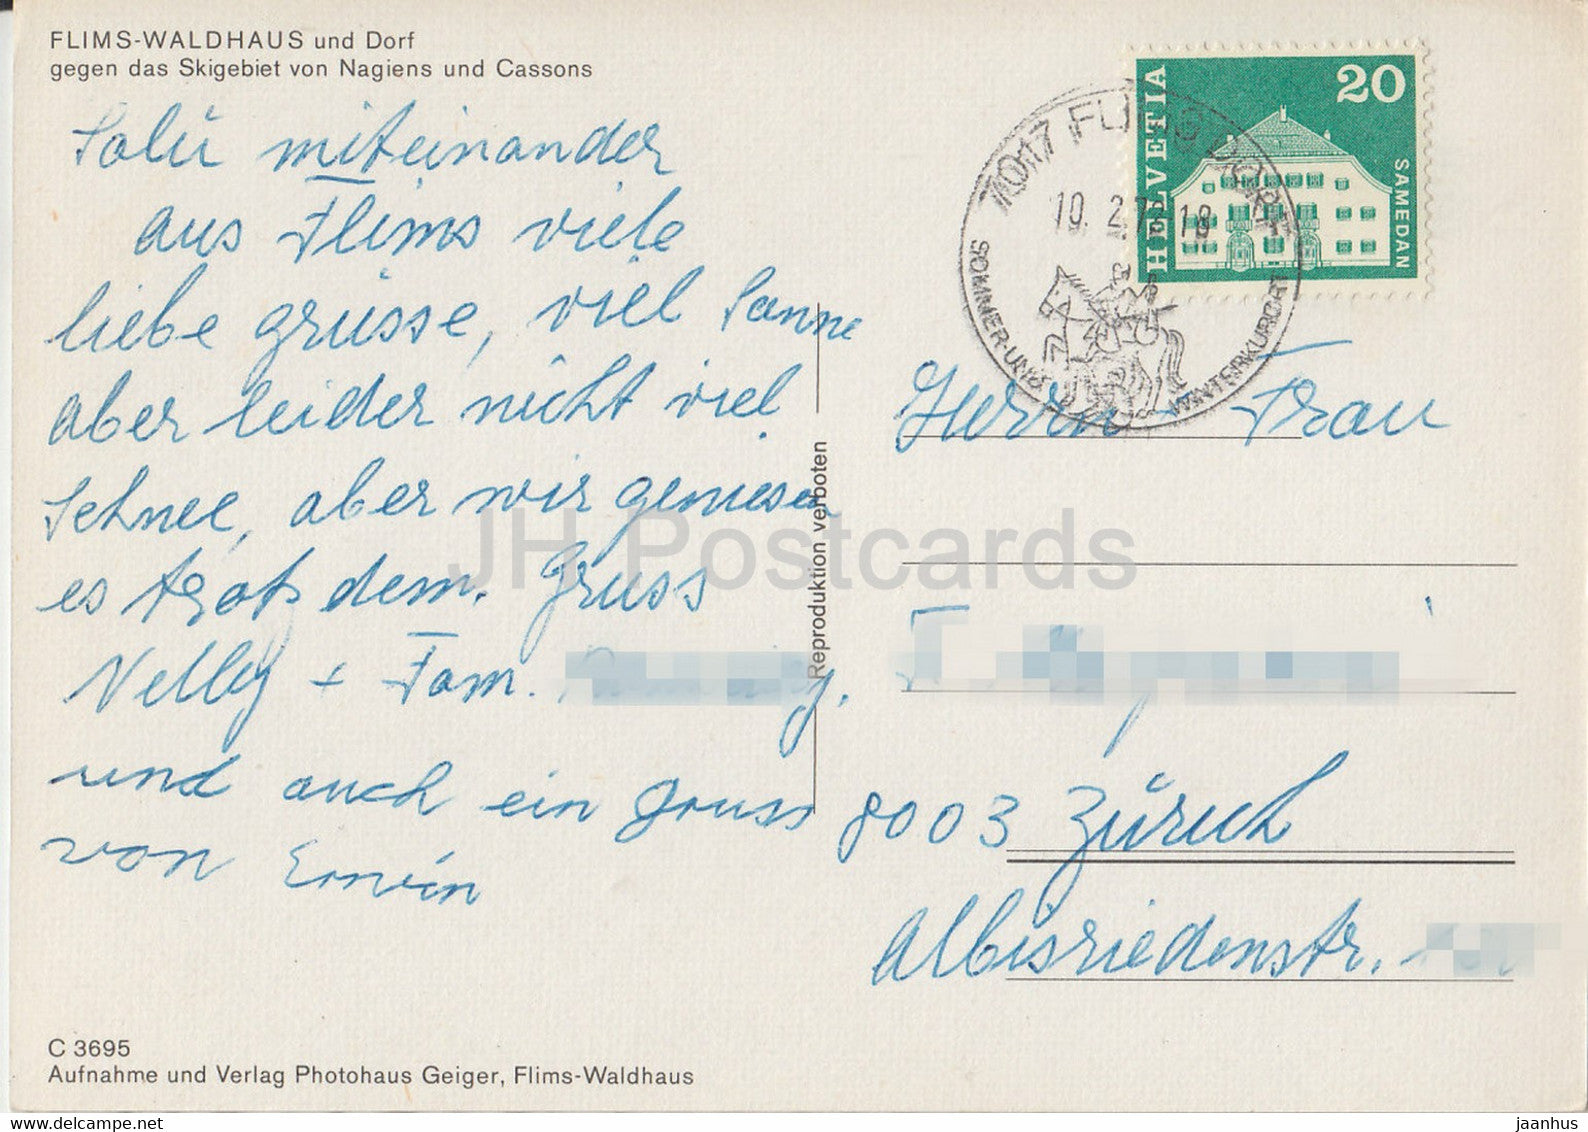 FLIMS-WALDHAUS und Dorf
gegen das Skigebiet von Nagiens und Cassons
Salü miteinander
aus Flims viele
liebe grüsse, viel Sonne
aber leider nicht viel
Schnee, aber wir geniesen
es trotzdem. Gruss
Nelly + Fam.
und auch ein gruss
von Erwin
C 3695
Aufnahme und Verlag Photohaus Geiger, Flims-Waldhaus
Reproduktion verboten
HELVETIA
20
SAMEDAN
7017 FLIMS DORF
SOMMER-UND WINTERKURORT
Herrn + Frau
8003 Zürich
Albisriedenstr.
JH Postcards
www.delcampe.net
jaanhus